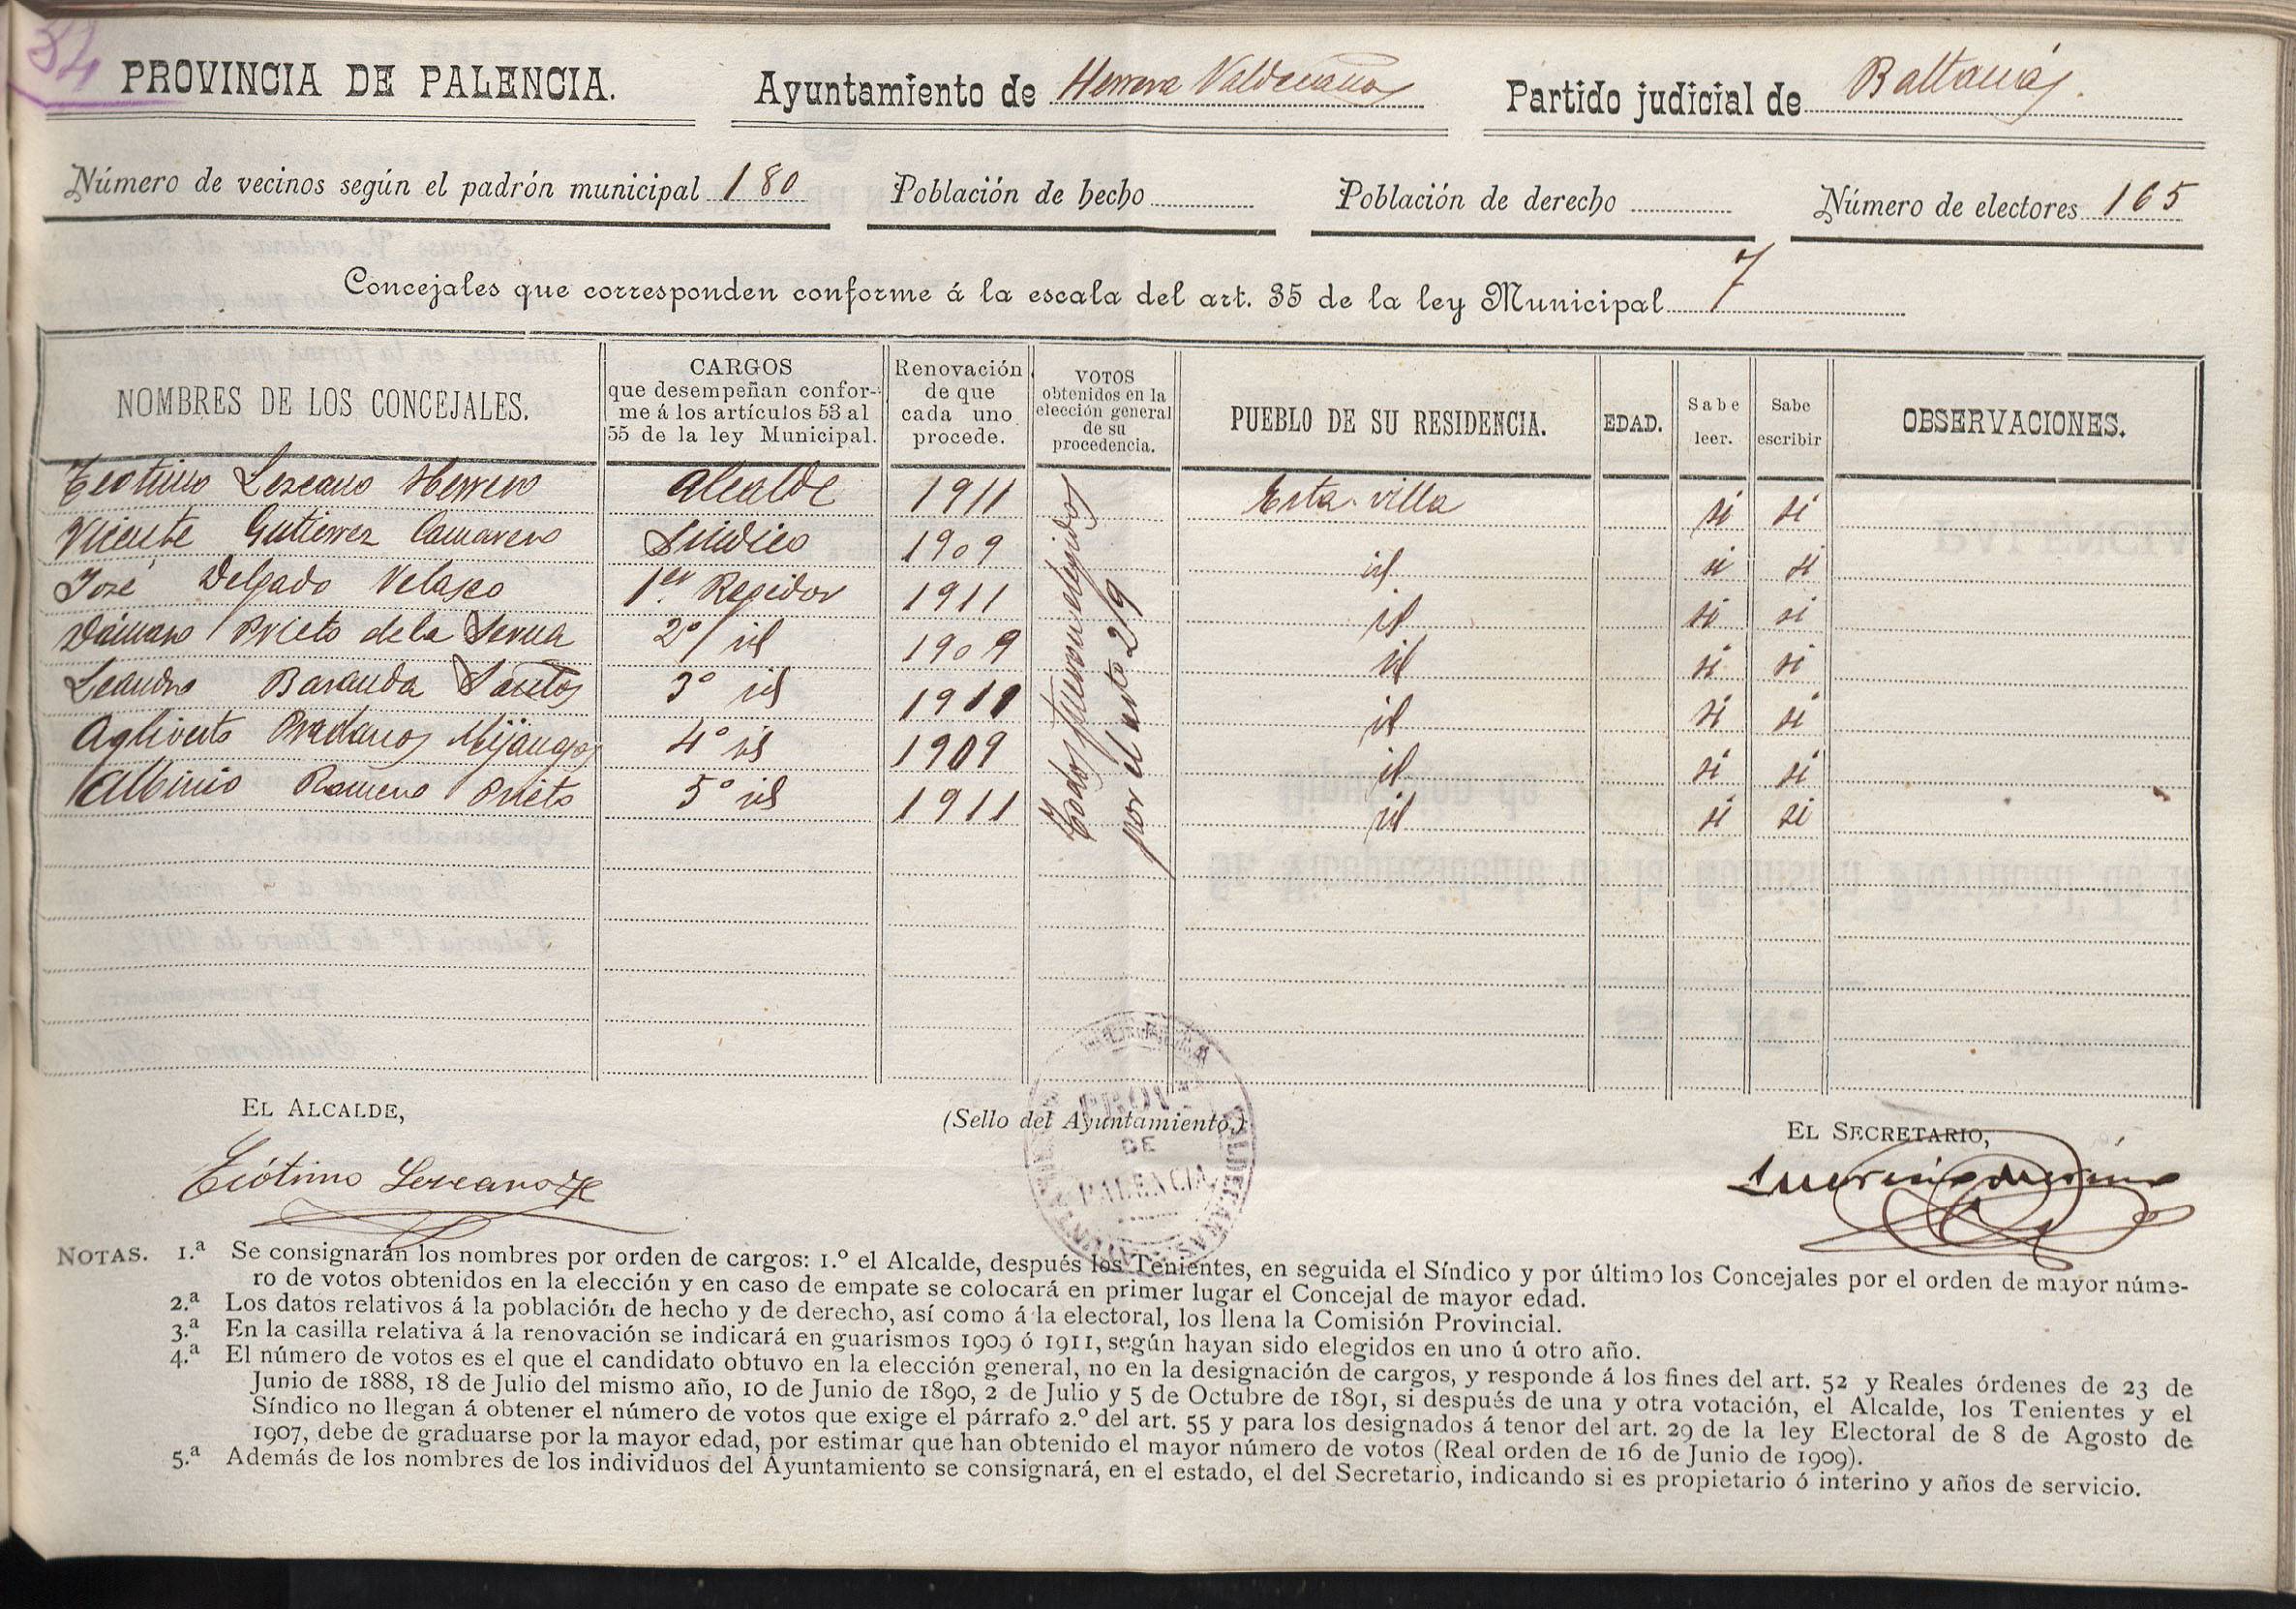 34
PROVINCIA DE PALENCIA. Ayuntamiento de Herrera Valdecañas Partido judicial de Baltanás.
Número de vecinos según el padrón municipal 180 Población de hecho Población de derecho Número de electores 165
Concejales que corresponden conforme á la escala del art. 35 de la ley Municipal 7
NOMBRES DE LOS CONCEJALES. CARGOS que desempeñan conforme á los artículos 53 al 55 de la ley Municipal. Renovación de que cada uno procede. VOTOS obtenidos en la elección general de su procedencia. PUEBLO DE SU RESIDENCIA. EDAD. Sabe leer. Sabe escribir OBSERVACIONES.
Teotimo Lezcano Herrero Alcalde 1911 Esta villa si si
Vicente Gutierrez Camarero Sindico 1909 id si si
José Delgado Velasco 1er Regidor 1911 id si si
Dámaso Prieto de la Serna 2º id 1909 id si si
Leandro Baranda Santos 3º id 1911 id si si
Agliverto Pradanos Mijangos 4º id 1909 id si si
Albinio Romero Prieto 5º id 1911 id si si
Todos fueron elegidos
por el arto 29
EL ALCALDE, (Sello del Ayuntamiento.) EL SECRETARIO,
Teótimo Lezcano
PROV.
DE
PALENCIA
NOTAS. 1.ª Se consignarán los nombres por orden de cargos: 1.º el Alcalde, después los Tenientes, en seguida el Síndico y por último los Concejales por el orden de mayor núme-
ro de votos obtenidos en la elección y en caso de empate se colocará en primer lugar el Concejal de mayor edad.
2.ª Los datos relativos á la población de hecho y de derecho, así como á la electoral, los llena la Comisión Provincial.
3.ª En la casilla relativa á la renovación se indicará en guarismos 1909 ó 1911, según hayan sido elegidos en uno ú otro año.
4.ª El número de votos es el que el candidato obtuvo en la elección general, no en la designación de cargos, y responde á los fines del art. 52 y Reales órdenes de 23 de
Junio de 1888, 18 de Julio del mismo año, 10 de Junio de 1890, 2 de Julio y 5 de Octubre de 1891, si después de una y otra votación, el Alcalde, los Tenientes y el
Síndico no llegan á obtener el número de votos que exige el párrafo 2.º del art. 55 y para los designados á tenor del art. 29 de la ley Electoral de 8 de Agosto de
1907, debe de graduarse por la mayor edad, por estimar que han obtenido el mayor número de votos (Real orden de 16 de Junio de 1909).
5.ª Además de los nombres de los individuos del Ayuntamiento se consignará, en el estado, el del Secretario, indicando si es propietario ó interino y años de servicio.